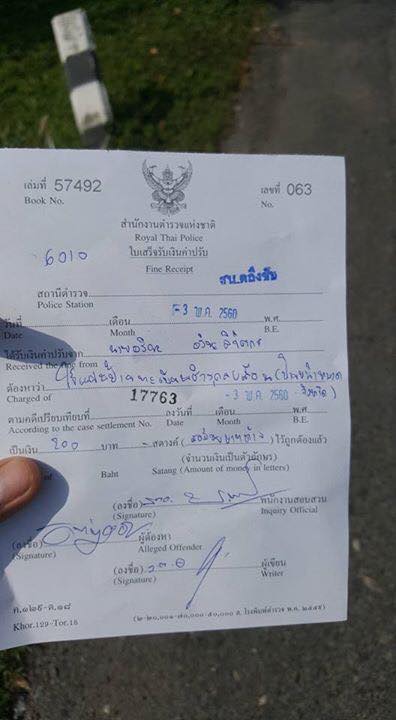 เล่มที่ 57492 เลขที่ 063
Book No. No.
สำนักงานตำรวจแห่งชาติ
Royal Thai Police
6010 ใบเสร็จรับเงินค่าปรับ
Fine Receipt
สถานีตำรวจ สน.ตลิ่งชัน
Police Station
วันที่ เดือน -3 พ.ค. 2560 พ.ศ.
Date Month B.E.
ได้รับเงินค่าปรับจาก
Received the fine from
ต้องหาว่า
Charged of 17763 -3 พ.ค. 2560
ตามคดีเปรียบเทียบที่ ลงวันที่ เดือน พ.ศ.
According to the case settlement No. Date Month B.E.
เป็นเงิน 200 บาท - สตางค์ ( ) ไว้ถูกต้องแล้ว
(จำนวนเงินเป็นตัวอักษร)
of Baht Satang (Amount of money in letters)
(ลงชื่อ) พนักงานสอบสวน
(Signature) Inquiry Official
(ลงชื่อ) ผู้ต้องหา
(Signature) Alleged Offender
(ลงชื่อ) ผู้เขียน
(Signature) Writer
ค.๑๒๙-ต.๑๘
Khor.129-Tor.18